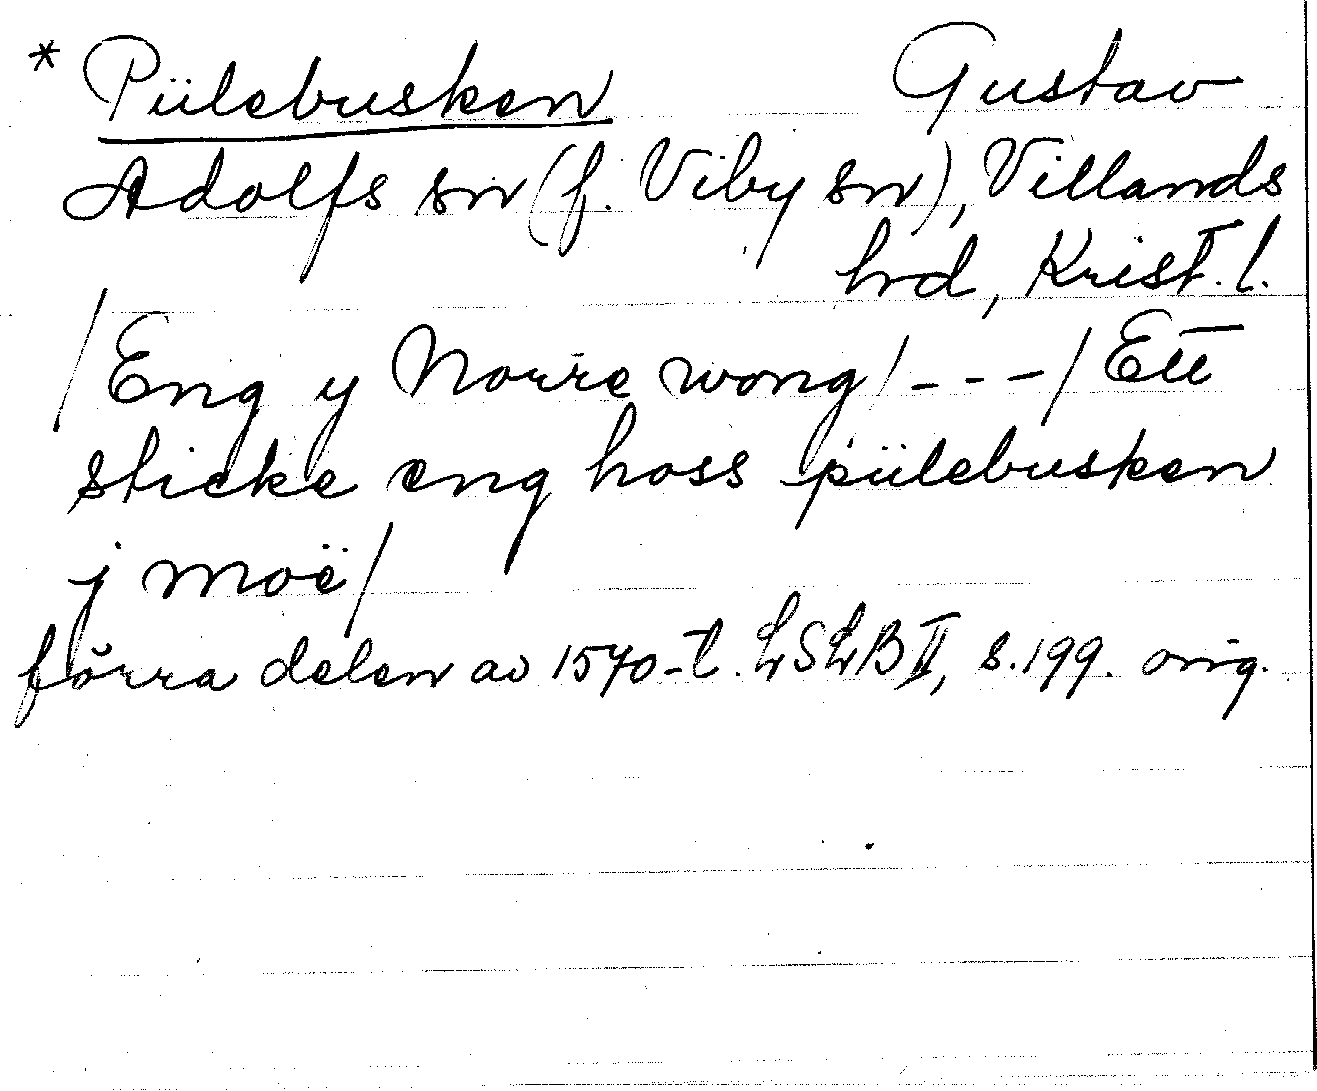 * Pülebusken Gustav
Adolfs sn (f. Viby sn), Villands
hrd, Krist. l.
/Eng y Norre wong/---/Ett
sticke eng hoss pülebusken
j moë/
förra delen av 1570-t. LSLB II, s. 199. orig.